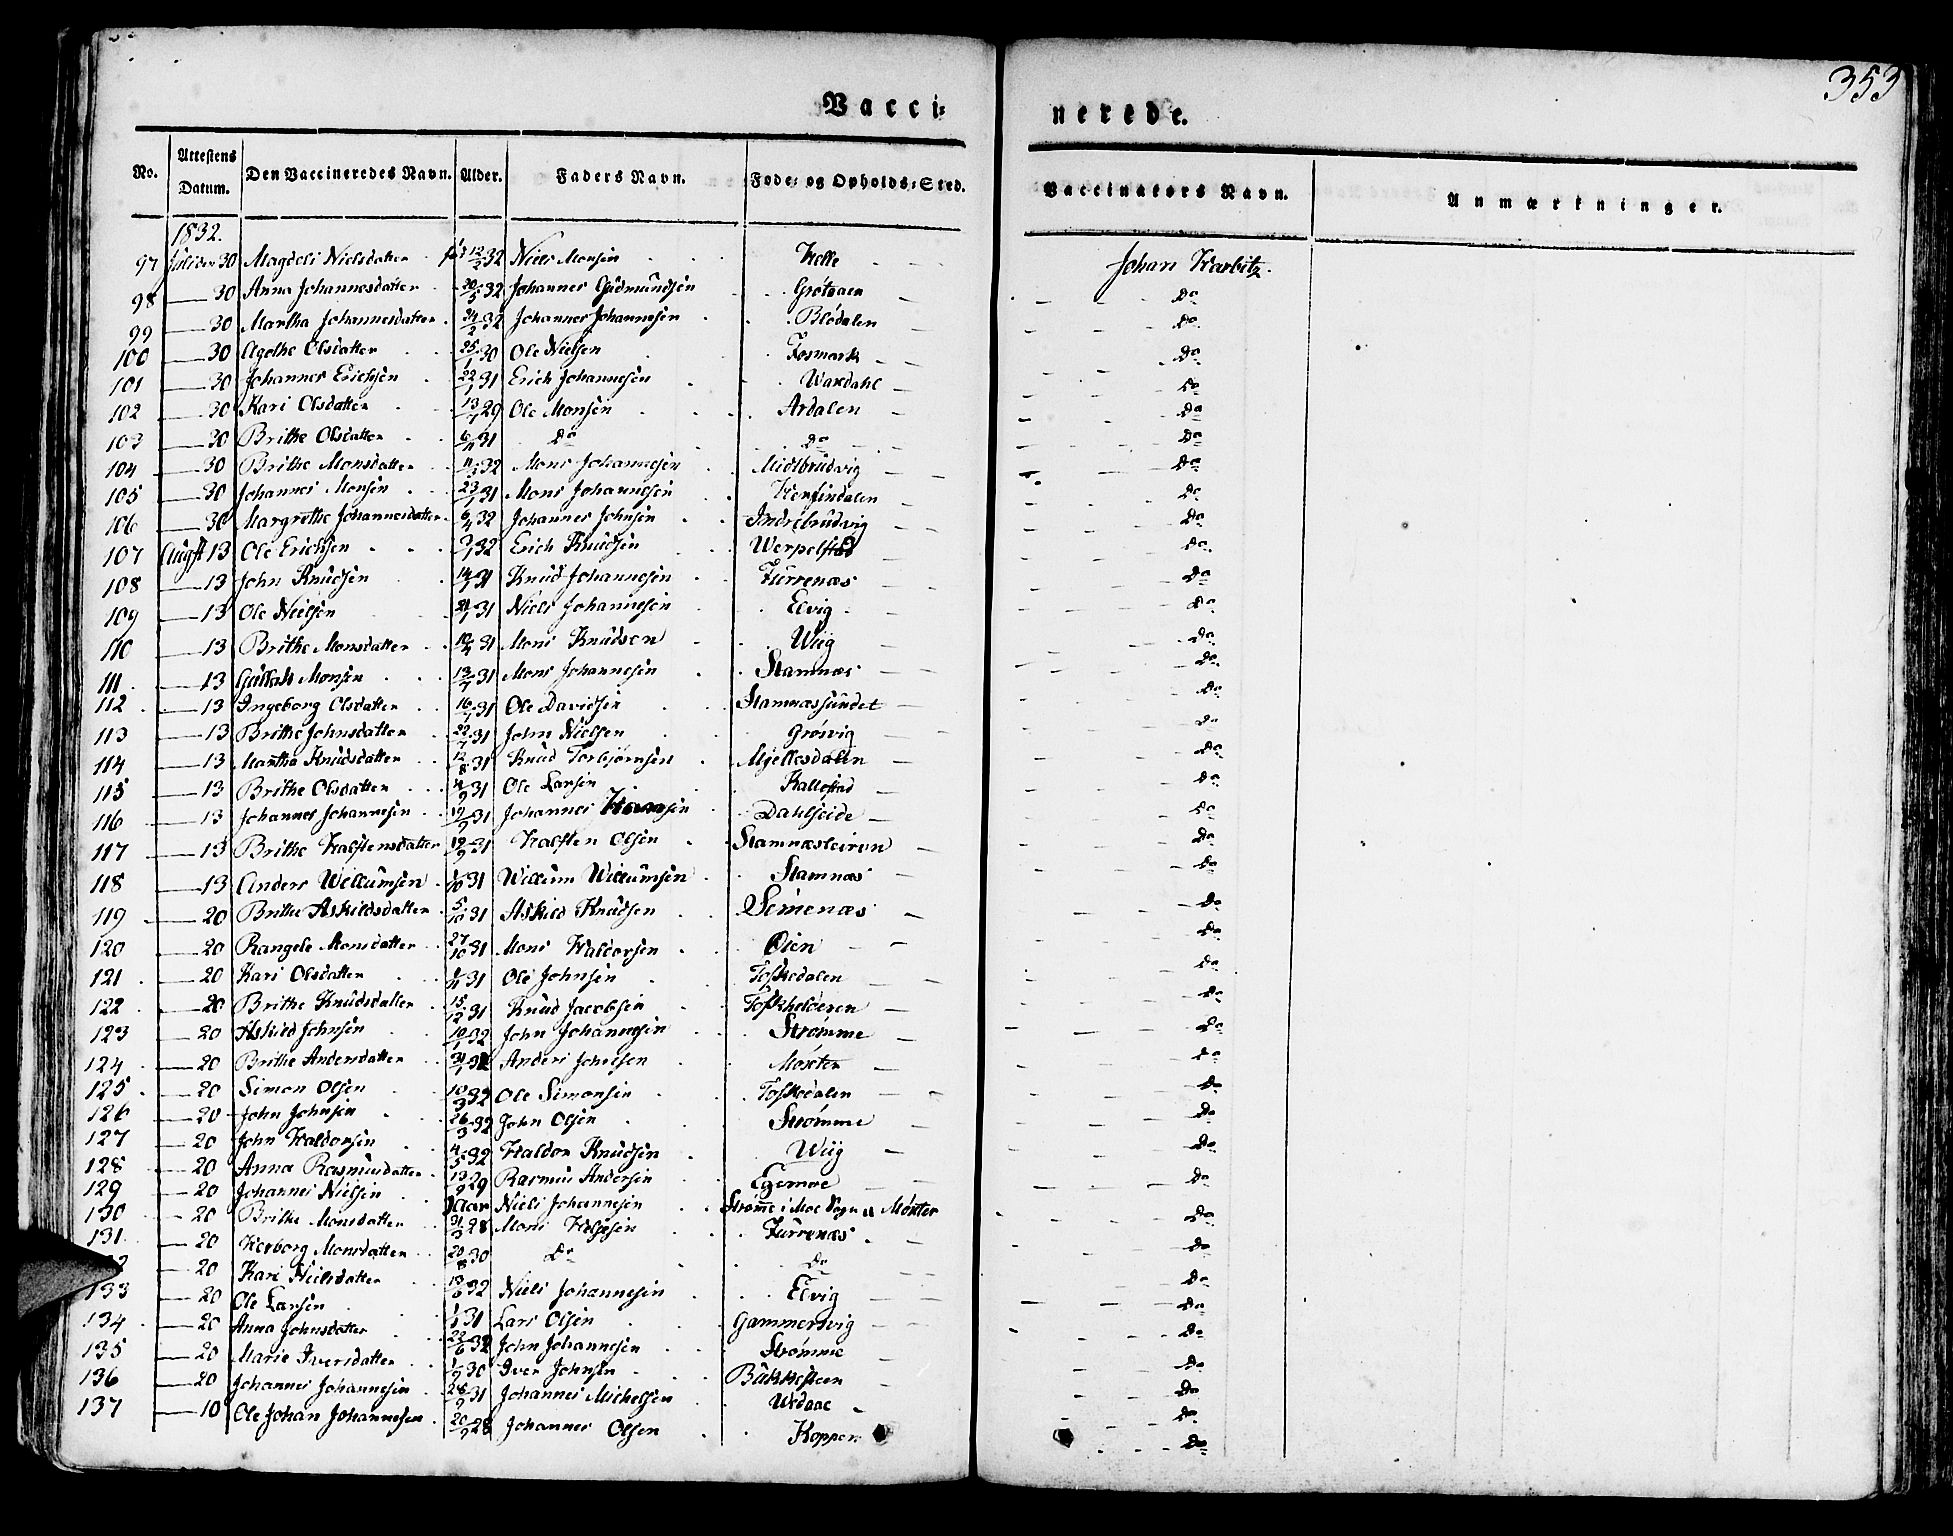 353
Vacci- nerede.
No. Attestens Datum. Den Vaccineredes Navn. Alder. Faders Navn. Føde- og Opholds-Sted. Vaccinators Navn. Anmærkninger.
1832.
97 30 Magdeli Nielsdatter 12/2 32 Niels Monsen Helle Johan Harbitz.
98 30 Anna Johannesdatter 20/5 32 Johannes Gudmundsen Do
99 30 Martha Johannesdatter 24/2 32 Johannes Johannesen Blødalen Do
100 30 Agethe Olsdatter 25/1 30 Ole Nielsen Fosmark Do
101 30 Johannes Erichsen 22/1 31 Erich Johannesen Wardahl Do
102 30 Kari Olsdatter 29 Ole Monsen Ardalen Do
103 30 Brithe Olsdatter 31 Do Do Do
104 30 Brithe Monsdatter 32 Mons Johannesen Midtbrudvig Do
105 30 Johannes Monsen 23/1 31 Mons Johannesen Do
106 30 Margrethe Johannesdatter 6/4 32 Johannes Johnsen Indrebrudvig Do
107 Augst 13 Ole Erichsen 32 Erich Knudsen Do
108 13 John Knudsen 31 Knud Johannesen Furrenæs Do
109 13 Ole Nielsen 31 Niels Johannesen Elvig Do
110 13 Brithe Monsdatter 31 Mons Knudsen Wiig Do
111 13 Monsen 13/7 31 Mons Johannesen Stamnæs Do
112 13 Ingeborg Olsdatter 31 Ole Davidsen Stamnæssundet Do
113 13 Brithe Johnsdatter 22/7 31 John Nielsen Do
114 13 Martha Knudsdatter 12/8 31 Knud Torbjørnsen Mjellesdalen Do
115 13 Brithe Olsdatter 4/9 31 Ole Larsen Kallestad Do
116 13 Johannes Johannesen 31 Johannes Dahlseide Do
117 13 Brithe Halstensdatter 19/9 31 Halsten Olsen Stamnæsleiren Do
118 13 Anders Willumsen 31 Willum Willumsen Stamnæs Do
119 20 Brithe Askildsdatter 5/10 31 Askild Knudsen Do
120 20 Rangele Monsdatter 27/10 31 Mons Haldorsen Øien Do
121 20 Kari Olsdatter 31 Ole Johnsen Toskedalen Do
122 20 Brithe Knudsdatter 15/12 31 Knud Jacobsen Do
123 20 Askild Johnsen 10/1 32 John Johannesen Strømme Do
124 20 Brithe Andersdatter Anders Johnsen Moxter Do
125 20 Simon Olsen 18/3 32 Ole Simonsen Toskedalen Do
126 20 John Johnsen 26/3 32 John Olsen Strømme Do
127 20 John Haldorsen 4/5 32 Haldor Knudsen Wiig Do
128 20 Anna Rasmusdatter 13/9 29 Rasmus Andersen Egemoe Do
129 20 Johannes Nielsen Aar Niels Johannesen Strømme i Moe Sogn Møxter Do
130 20 Brithe Monsdatter 28 Mons Helgesen Furrenæs Do
131 20 Herborg Monsdatter 20/8 30 Do Do Do
20 Kari Nielsdatter 32 Niels Johannesen Elvig Do
133 20 Ole Larsen 31 Lars Olsen Gammersvig Do
134 20 Anna Johnsdatter 22/6 32 John Johannesen Strømme Do
135 20 Marie Iversdatter 30 Iver Johnsen Do
136 20 Johannes Johannesen 28/9 31 Johannes Michelsen Urdaae Do
137 10 Ole Johan Johannesen 20/9 28 Johannes Olsen Koppen Do